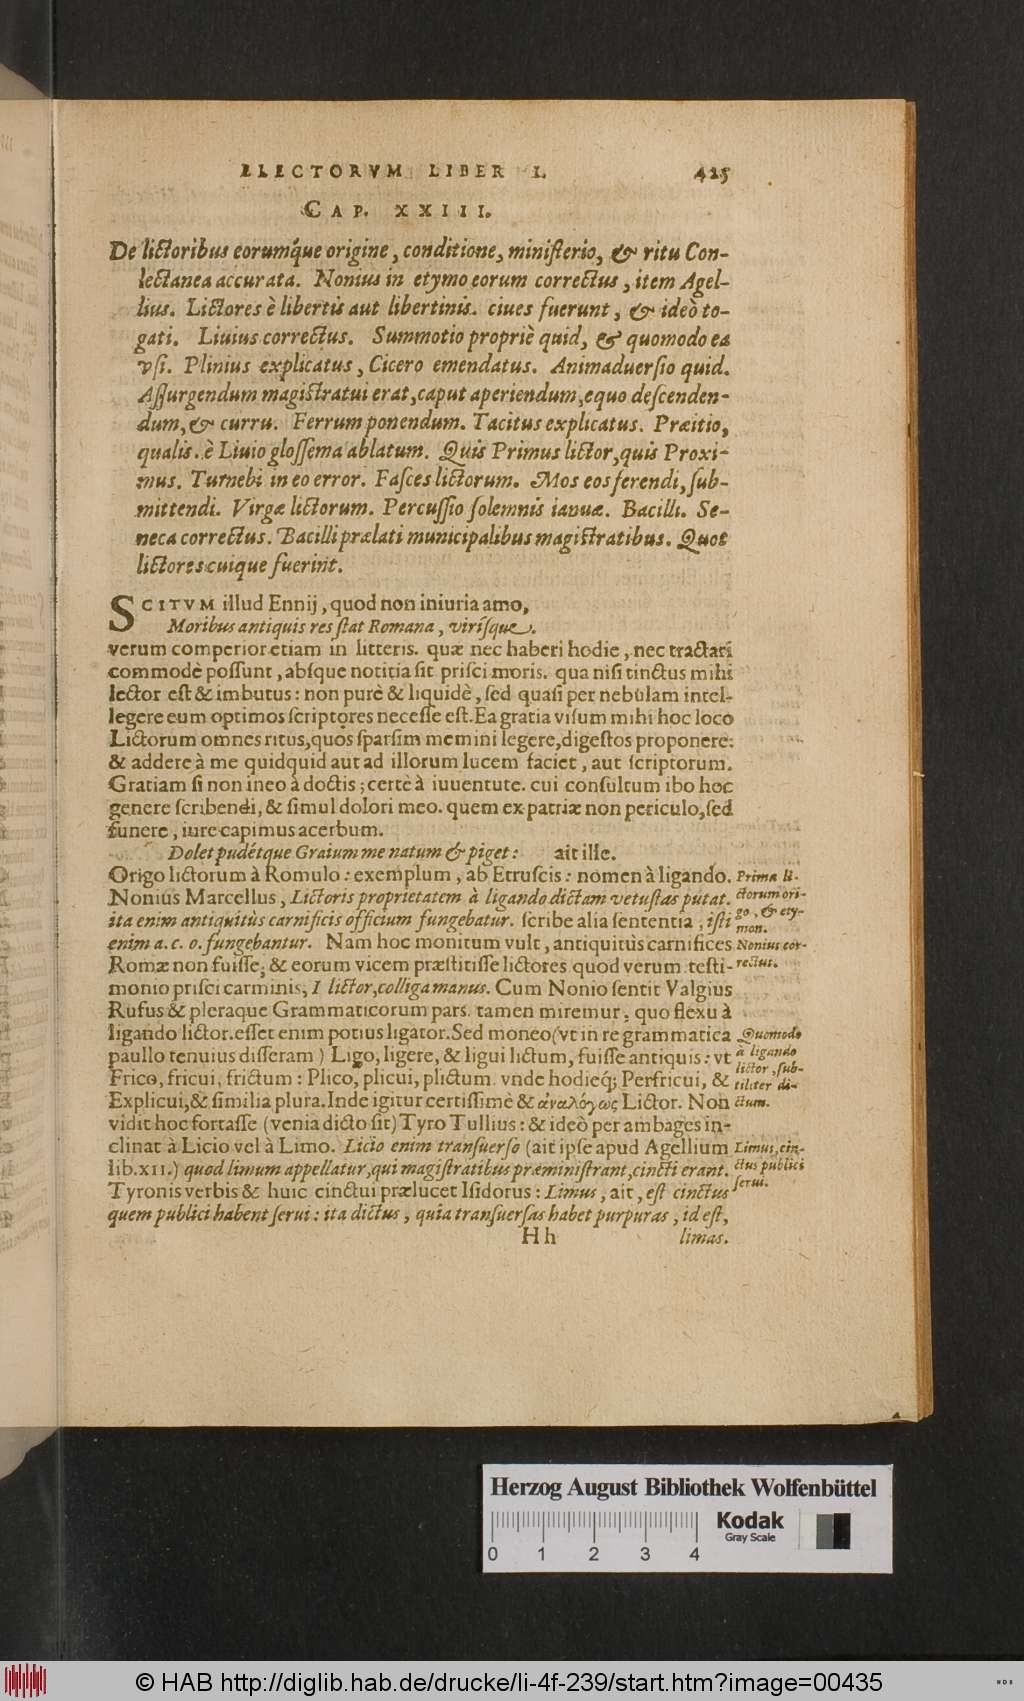 ELECTORVM LIBER I. 425
CAP. XXIII.
De lictoribus eorumq́ue origine, conditione, miniſterio, & ritu Con-
lectanea accurata. Nonius in etymo eorum correctus, item Agel-
lius. Lictores è libertis aut libertinis. ciues fuerunt, & ideò to-
gati. Liuius correctus. Summotio propriè quid, & quomodo ea
vſi. Plinius explicatus, Cicero emendatus. Animaduerſio quid.
Aſſurgendum magiſtratui erat, caput aperiendum, equo deſcenden-
dum, & curru. Ferrum ponendum. Tacitus explicatus. Præitio,
qualis. è Liuio gloſſema ablatum. Quis Primus lictor, quis Proxi-
mus. Turnebi in eo error. Faſces lictorum. Mos eos ferendi, ſub-
mittendi. Virgæ lictorum. Percuſſio ſolemnis ianuæ. Bacilli. Se-
neca correctus. Bacilli prælati municipalibus magiſtratibus. Quot
lictores cuique fuerint.
SCITVM illud Ennij, quod non iniuria amo,
Moribus antiquis res ſtat Romana, viriſque.
verum comperior etiam in litteris. quæ nec haberi hodie, nec tractari
commodè poſſunt, abſque notitia ſit priſci moris. qua niſi tinctus mihi
lector eſt & imbutus: non purè & liquidè, ſed quaſi per nebulam intel-
legere eum optimos ſcriptores neceſſe eſt. Ea gratia viſum mihi hoc loco
Lictorum omnes ritus, quos ſparſim memini legere, digeſtos proponere:
& addere à me quidquid aut ad illorum lucem faciet, aut ſcriptorum.
Gratiam ſi non ineo à doctis; certè à iuuentute. cui conſultum ibo hoc
genere ſcribendi, & ſimul dolori meo. quem ex patriæ non periculo, ſed
funere, iure capimus acerbum.
Dolet pudétque Graium me natum & piget: ait ille.
Origo lictorum à Romulo: exemplum, ab Etruſcis: nomen à ligando. Prima li-
Nonius Marcellus, Lictoris proprietatem à ligando dictam vetuſtas putat. ctorum ori-
ita enim antiquitùs carnificis officium fungebatur. ſcribe alia ſententia, iſti go, & ety-
mon.
enim a. c. o. fungebantur. Nam hoc monitum vult, antiquitùs carnifices Nonius cor-
Romæ non fuiſſe; & eorum vicem præſtitiſſe lictores quod verum teſti- rectus.
monio priſci carminis, I lictor, colliga manus. Cum Nonio ſentit Valgius
Rufus & pleraque Grammaticorum pars. tamen miremur, quo flexu à
ligando lictor. eſſet enim potius ligator. Sed moneo (vt in re grammatica Quomodo
paullo tenuius diſſeram) Ligo, ligere, & ligui lictum, fuiſſe antiquis: vt à ligando
lictor, ſub-
Frico, fricui, frictum: Plico, plicui, plictum. vnde hodieq; Perfricui, & tiliter di-
Explicui, & ſimilia plura. Inde igitur certiſſimè & ἀναλόγως Lictor. Non ctum.
vidit hoc fortaſſe (venia dicto ſit) Tyro Tullius: & ideò per ambages in-
clinat à Licio vel à Limo. Licio enim tranſuerſo (ait ipſe apud Agellium Limus, cin-
lib. XII.) quod limum appellatur, qui magiſtratibus præminiſtrant, cincti erant. ctus publici
Tyronis verbis & huic cinctui prælucet Iſidorus: Limus, ait, eſt cinctus ſerui.
quem publici habent ſerui: ita dictus, quia tranſuerſas habet purpuras, id eſt,
Hh limas.
Herzog August Bibliothek Wolfenbüttel
Kodak
Gray Scale
0 1 2 3 4
© HAB http://diglib.hab.de/drucke/li-4f-239/start.htm?image=00435